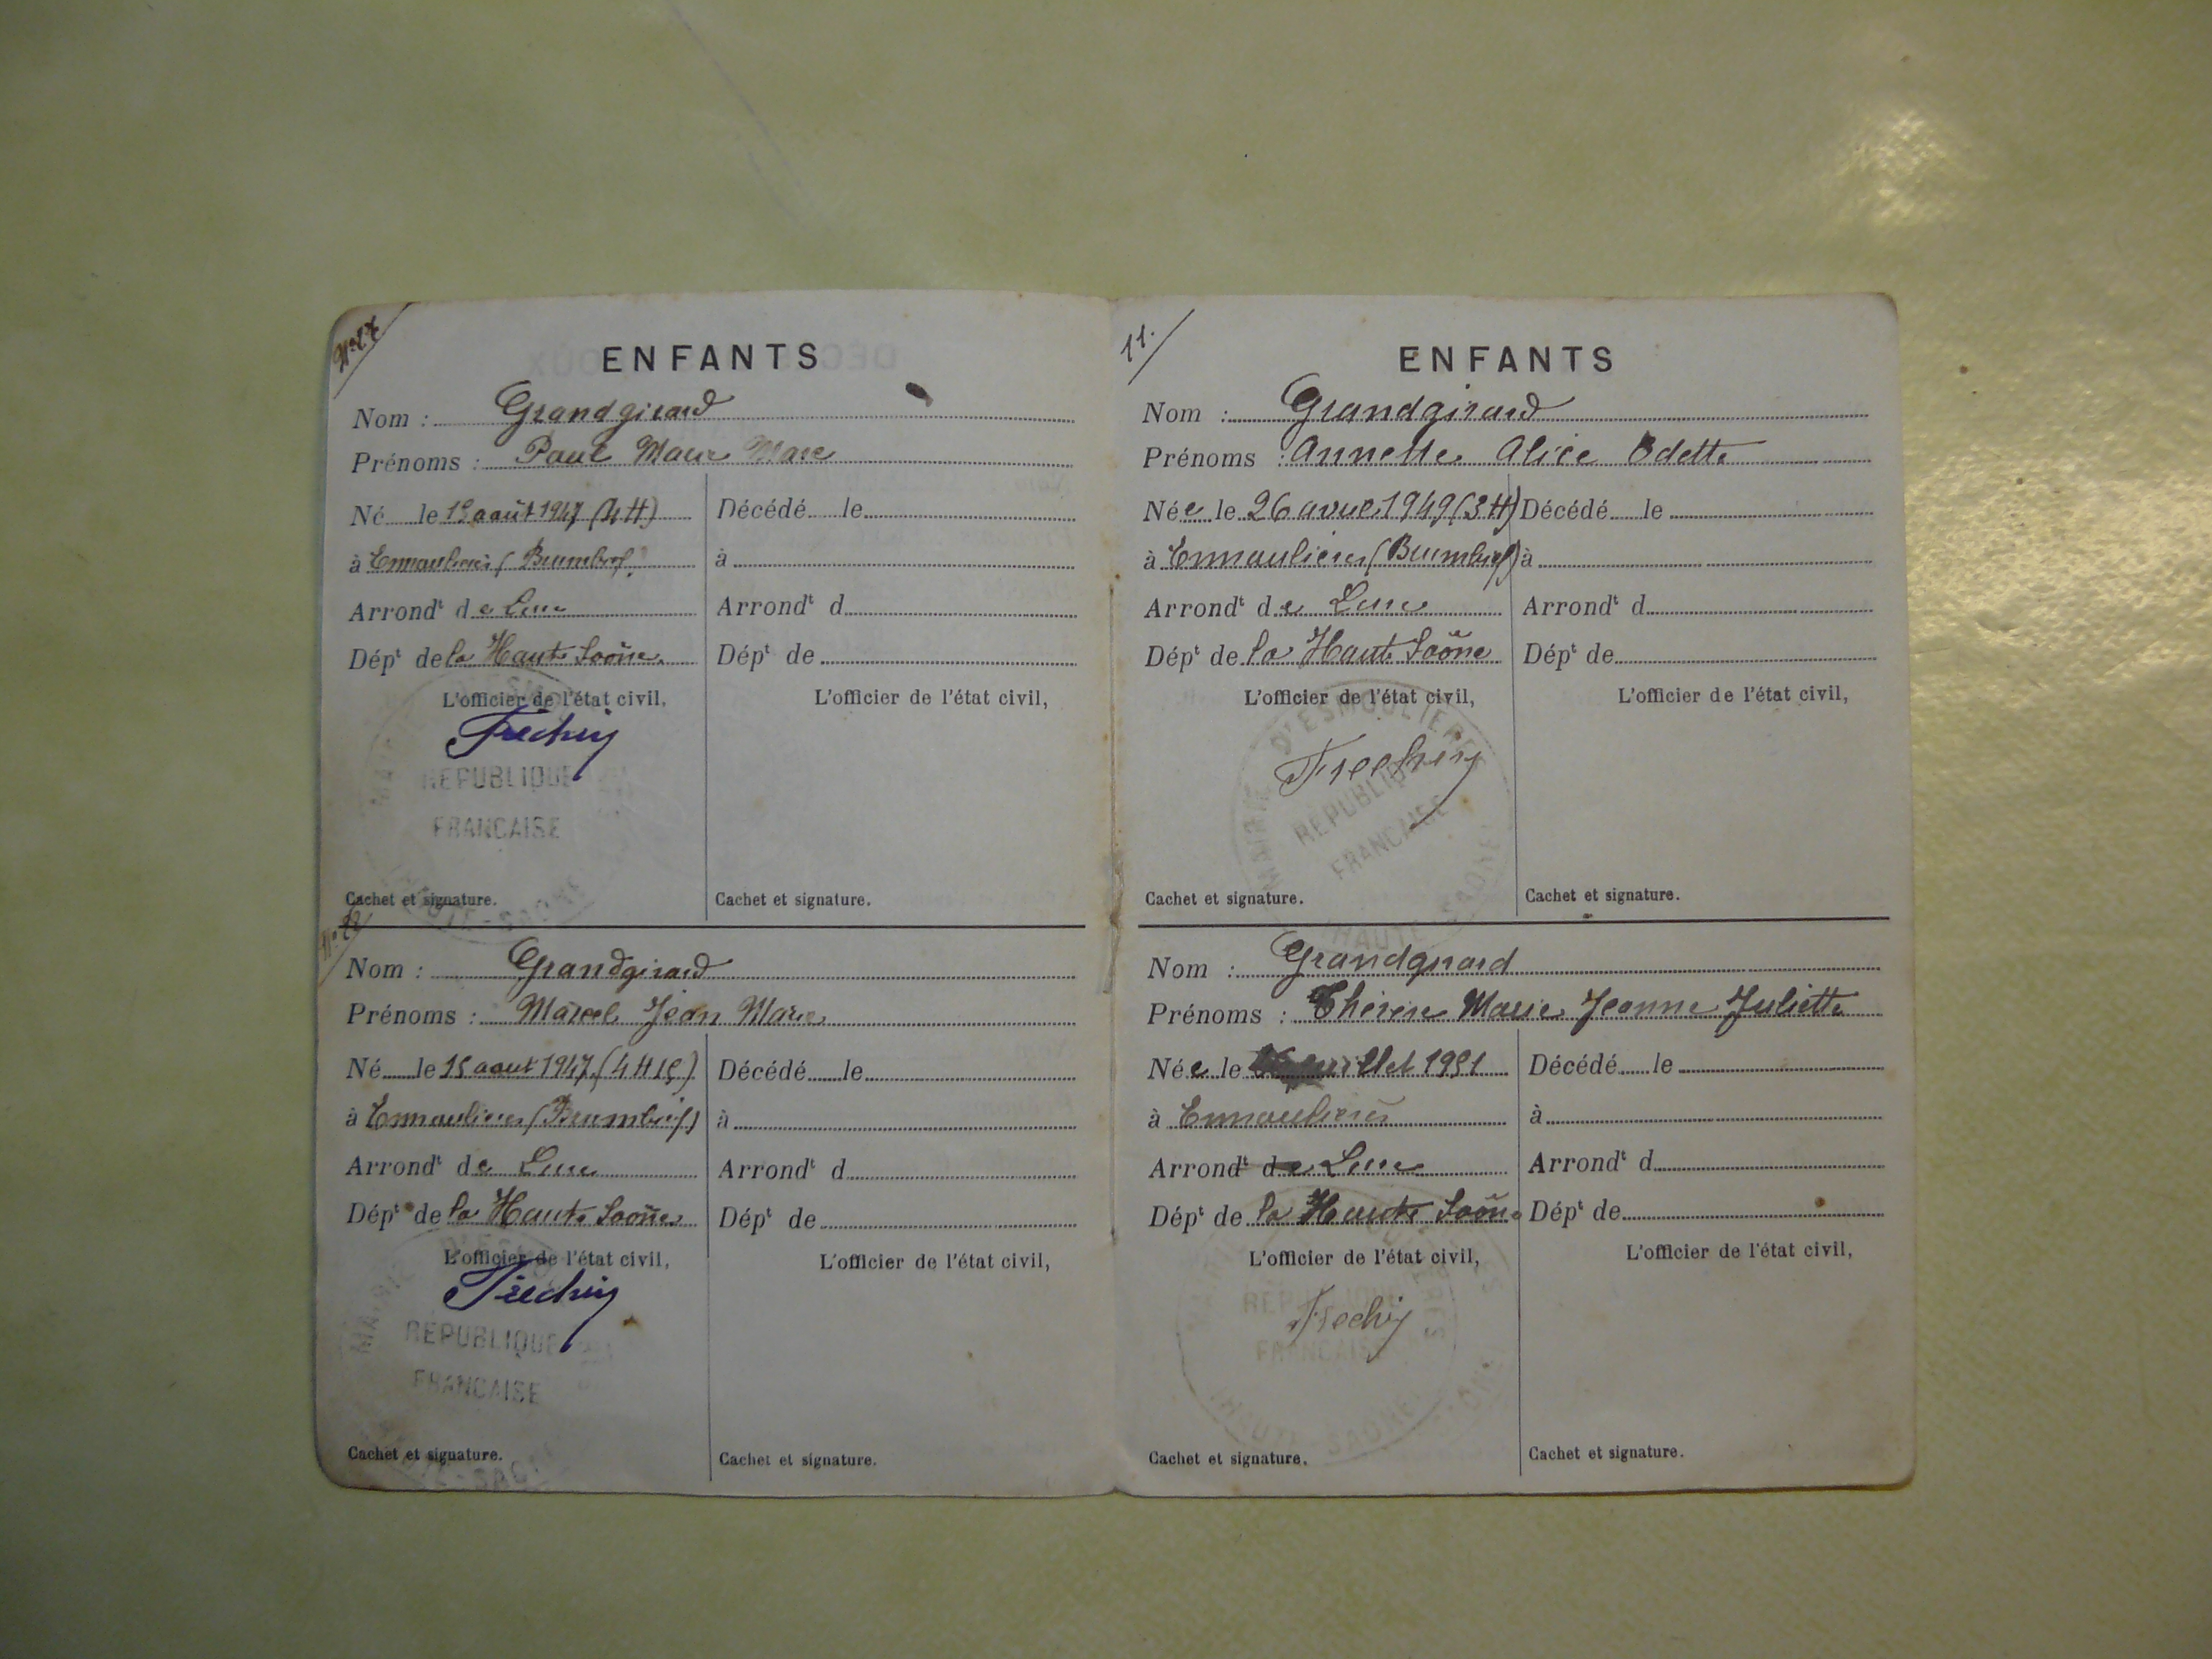 ENFANTS
Nom : Grandgirard
Prénoms : Paul Marie Marc
Né le 15 août 1947 (4 H)
à Esmoulières
Arrondt de Lure
Dépt de la Haute Saône
L'officier de l'état civil,
Frechin
REPUBLIQUE
FRANCAISE
Cachet et signature.
Décédé le
à
Arrondt d
Dépt de
L'officier de l'état civil,
Cachet et signature.
Nom : Grandgirard
Prénoms : Marcel Jean Marie
Né le 15 aout 1947 (4 H 15)
à Esmoulières
Arrondt de Lure
Dépt de la Haute Saône
L'officier de l'état civil,
Frechin
REPUBLIQUE
FRANCAISE
Cachet et signature.
Décédé le
à
Arrondt d
Dépt de
L'officier de l'état civil,
Cachet et signature.
11.
ENFANTS
Nom : Grandgirard
Prénoms : Annette Alice Odette
Née le 26 avril 1949 (3 H)
à Esmoulières
Arrondt de Lure
Dépt de la Haute Saône
L'officier de l'état civil,
Frechin
MAIRIE D'ESMOULIERES
REPUBLIQUE
FRANCAISE
HAUTE SAONE
Cachet et signature.
Décédé le
à
Arrondt d
Dépt de
L'officier de l'état civil,
Cachet et signature.
Nom : Grandgirard
Prénoms : Thérèse Marie Jeanne Juliette
Née le juillet 1951
à Esmoulières
Arrondt de Lure
Dépt de la Haute Saône
L'officier de l'état civil,
Frechin
REPUBLIQUE
FRANCAISE
HAUTE SAONE
Cachet et signature.
Décédé le
à
Arrondt d
Dépt de
L'officier de l'état civil,
Cachet et signature.